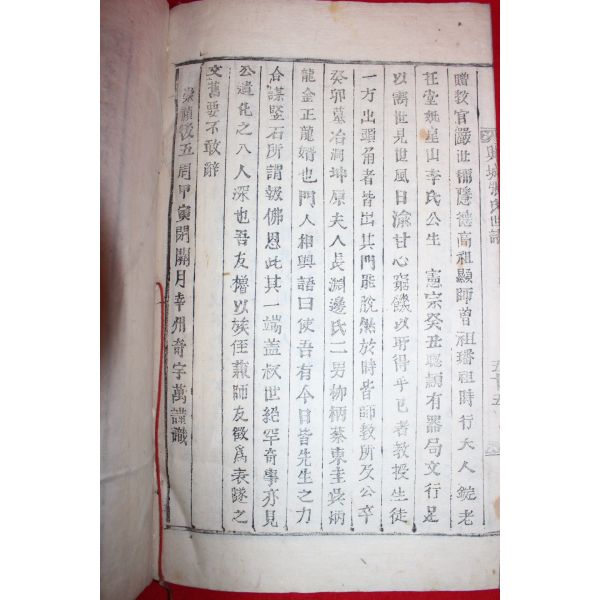 興城張氏世譜
贈教官嚴世稱隱德高祖顯師曾祖璠祖時行大人錠老
狂堂妣星山李氏公生 憲宗癸丑聰頴有器局文行足
以离世見世風日渝甘心窮餓以所得乎己者教授生徒
一方出頭角者皆出其門能脫
於時皆師教所及公卒
癸卯墓冶洞坤原夫人長淵邊氏二男柳柄蔡東圭吳炳
龍金正龍婿也門人相與語曰使吾有今日皆先生之力
合謀竪石所謂報佛恩此其一端盖叔世絕罕奇擧亦見
公遺化之入人深也吾友櫓以族侄
師友徵爲表隧之
文舊要不敢辭
崇禎後五周甲寅閉關月幸州奇宇萬謹識